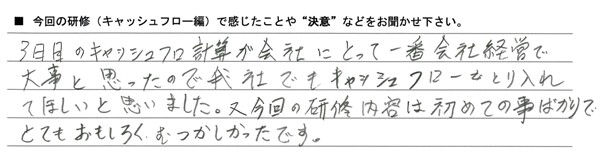 ■ 今回の研修（キャッシュフロー編）で感じたことや“決意”などをお聞かせ下さい。
3日目のキャッシュフロ計算が会社にとって一番会社経営で
大事と思ったので我社でもキャッシュフローをとり入れ
てほしいと思いました。又今回の研修内容は初めての事ばかりで
とてもおもしろくむつかしかったです。